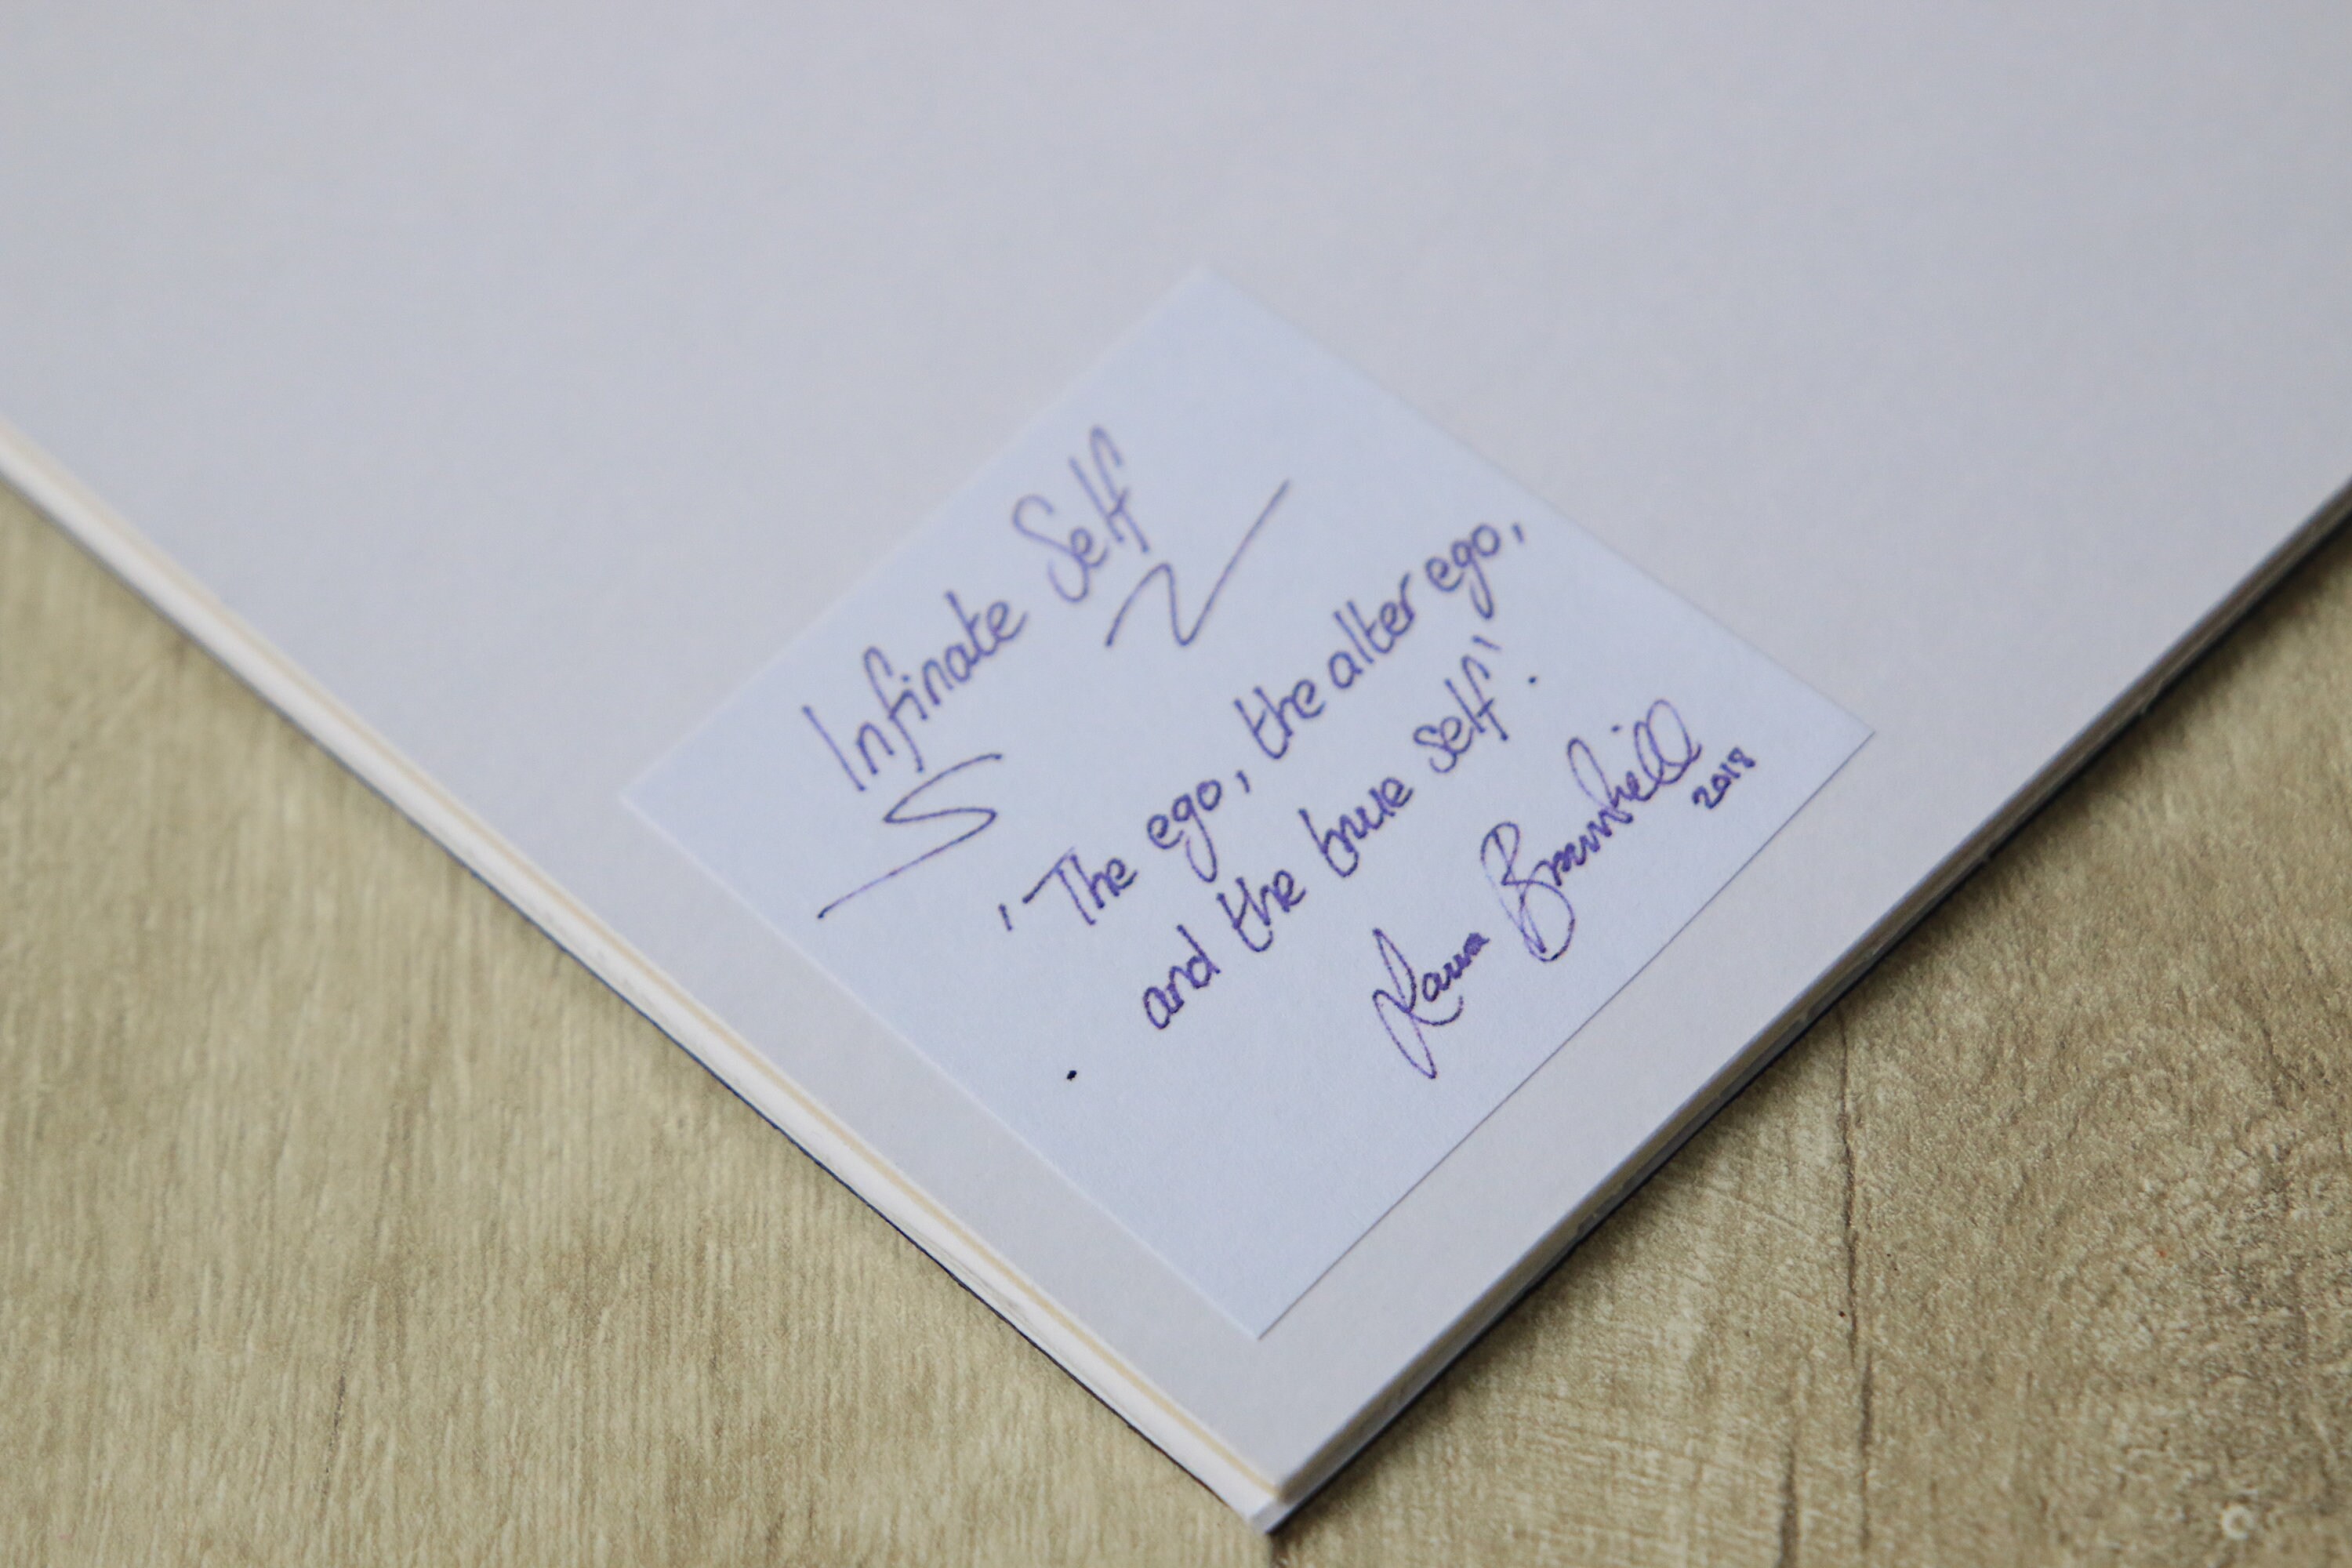 Infinate Self
'The ego, the alter ego,
and the true self'.
Laura Bramhill
2018